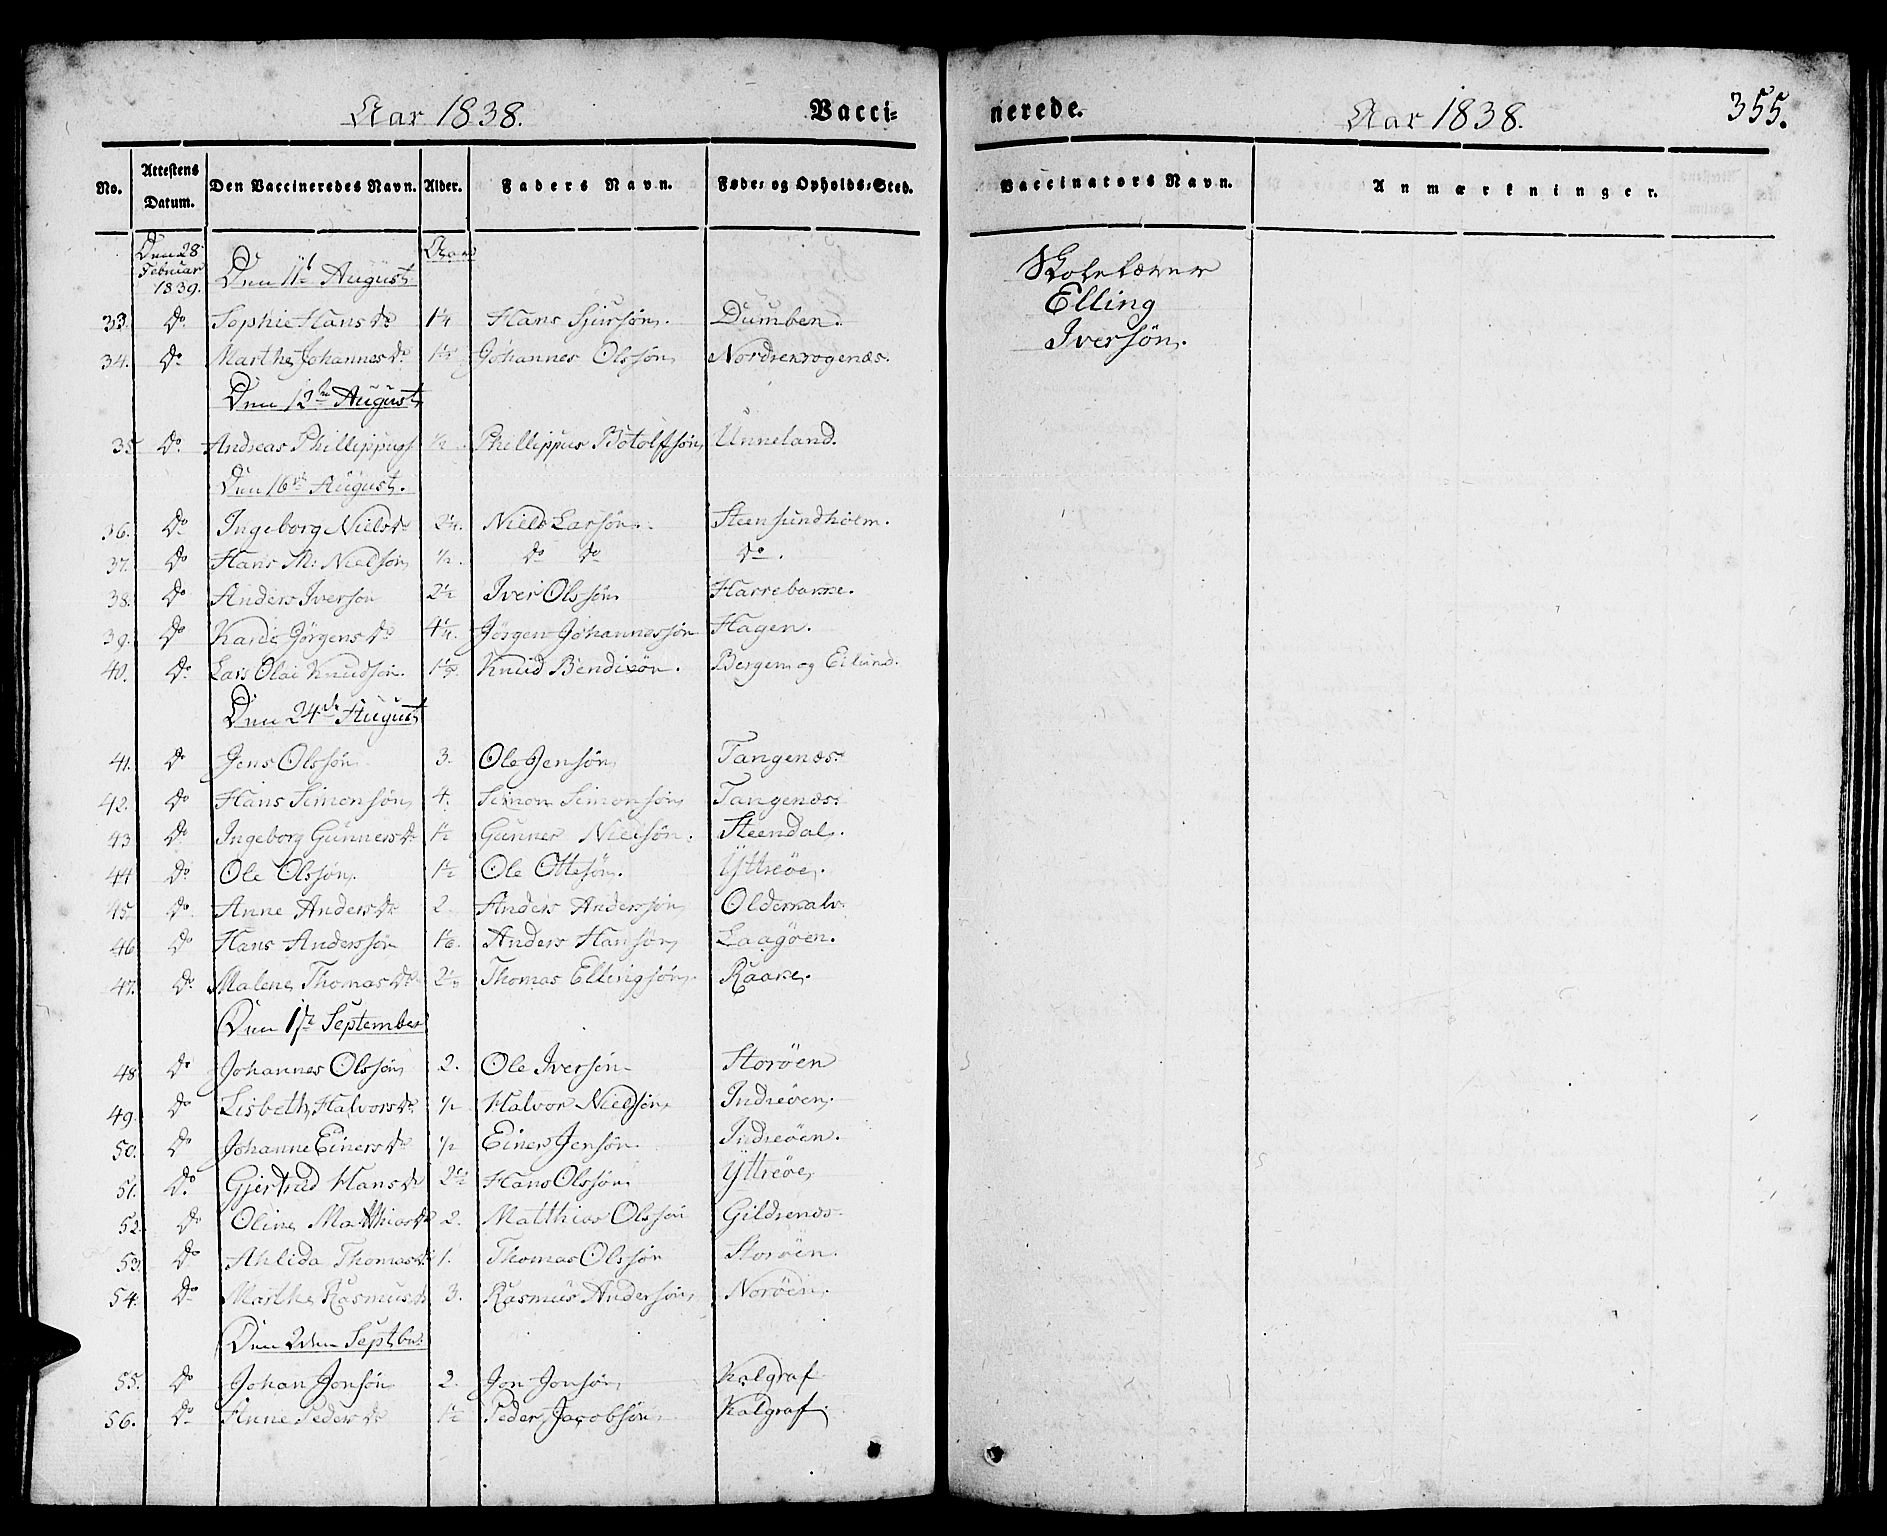 Aar 1838. Vacci- nerede. Aar 1838. 355.
No. Attestens Datum. Den Vaccineredes Navn. Alder. Faders Navn. Føde- og Opholds-Sted. Vaccinators Navn. Anmærkninger.
Den 28 Februar 1839. Den 11te August Aar Skolelærer
Elling
Iversøn.
33. Do Sophie Hansdr 1 1/4 Hans Sjursøn. Dumben.
34. Do Marthe Johannesdr Johannes Olssøn Nordrekrogenæs.
Den 12te August
35 Do Andreas Phillippuss 1/2 Phillippus Botolfsøn Unneland.
Den 16de August.
36. Do Ingeborg Nielsdr 2 1/4. Niels Larsøn. Steensundholm.
37. Do Hans M: Nielsøn 1/2. do do do.
38. Do Anders Iversøn 2 1/2 Iver Olssøn Harrebakke.
39. Do Karie Jørgensdr 4 1/4. Jørgen Johannessøn Hagen.
40. Do Lars Olai Knudsøn Knud Bendixøn. Bergen og Eilund.
Den 24de August
41. Do Jens Olssøn 3. Ole Jensøn Tangenæs.
42. Do Hans Simonsøn 4. Simon Simonsøn Tangenæs.
43 Do Ingeborg Gunnersdr 1 1/2 Gunner Nielsøn. Steendal.
44 Do Ole Olssøn. 1 1/2 Ole Ottesøn. Yttreøe.
45. Do Anne Andersdr 2 Anders Anderssøn Olderkalv.
46 Do Hans Anderssøn 1 1/6. Anders Hansøn Laagøen.
47. Do Malene Thomasdr Thomas Ellingsøn. Raake.
Den 1te September
48 Do Johannes Olssøn 2. Ole Iversøn Storöen
49. Do Lisbeth Halvorsdr 1/2 Halvor Nielsøn Indreöen.
50. Do Johanne Einersdr 1/2 Einer Jensøn. Indreöen.
51. Do Gjertrud Hansdr 2 1/2 Hans Olssøn Yttreøe
52 Do Oline Matthiasdr 2. Matthias Olssøn Gildrenæs
53. Do Ahlida Thomasdr 1. Thomas Olssøn Storöen.
54. Do Marthe Rasmusdr 3. Rasmus Andersøn Noröen.
Den 2den Septbr.
55. Do Johan Jonsøn 2. Jon Jonsøn Kalgraf
56. Do Anne Pedersdr 1 1/2 Peder Jacobsøn Kalgraf